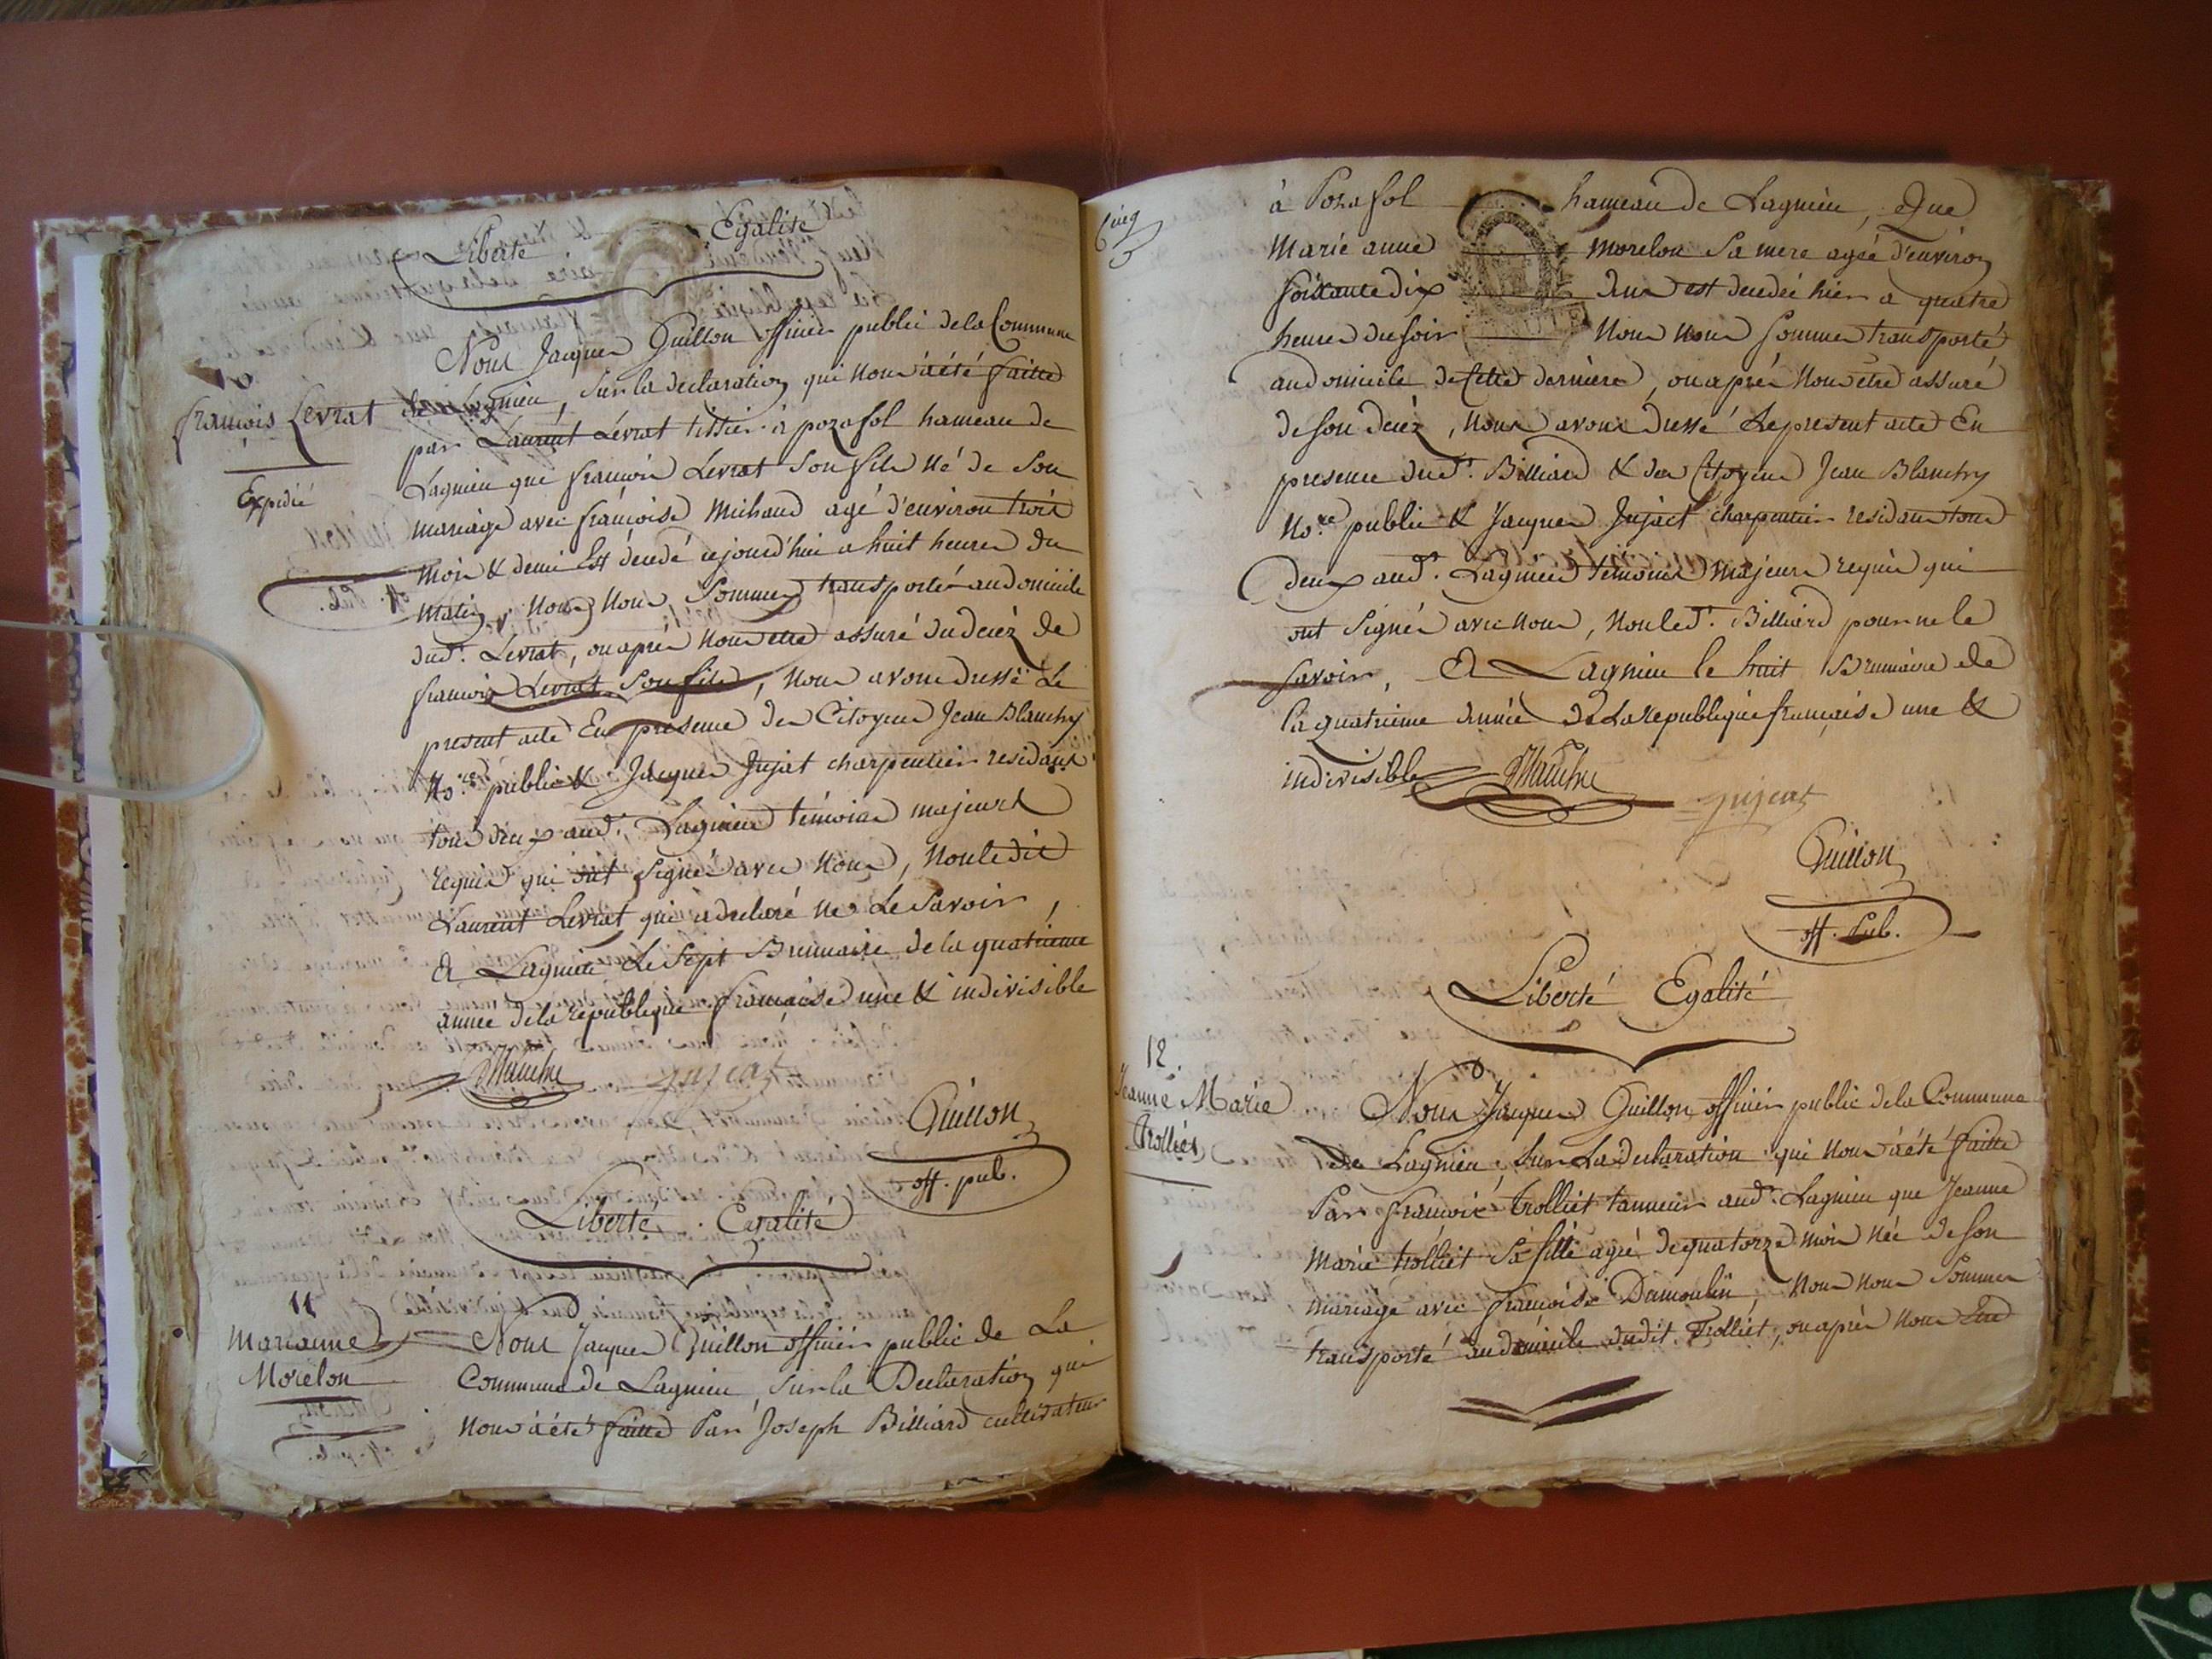 Liberté Egalité
10
françois Levrat
Expedié
Nous Jacques Guillon officier public dela Commune
de Lagnieu, sur la declaration qui nous àété faitte
par Laurent Levrat tissier à pozafol hameau de
Lagnieu que françois Levrat son fils né de son
mariage avec françoise Michaud agé d'environ trois
mois & demi Est décédé cejourd'hui a huit heures du
matin, Nous Nous Sommes transportés audomicile
dud.t Levrat, ou après Nous etre assuré dudecéz de
françois Levrat son fils, Nous avons dressé Le
present acte En présence des Citoyens Jean Blanchy
No.re public & Jacques Jujat charpentier residant
tous deux aud.t Lagnieu témoins majeurs
requis qui ont signé avec Nous, Nonledit
Laurent Levrat qui adeclaré ne Le Savoir,
A Lagnieu Le Sept Brumaire de la quatrieme
année dela republique française une & indivisible
Blanchy Jujeat
Guillon
off. pub.
Liberté. Egalité
11
Marianne
Morelon
Nous Jacques Guillon officier public de La
Commune de Lagnieu, sur la Declaration qui
nous àété faitte Par Joseph Billiard cultivateur
Cinq
à Pozafol hameau de Lagnieu, que
Marie anne Morelon Sa mere agée d'environ
soixante dix ans est decedée hier a quatre
heures du soir Nous nous sommes transporté
audomicile de Cette derniere, ou après Nous etre assuré
de son decéz, Nous avons dressé Le present acte En
presence dud.t Billiard & des Citoyens Jean Blanchy
No.re public & Jacques Jujact charpentier residans tous
deux aud.t Lagnieu témoins majeurs requis qui
ont signés avec nous, Nonled.t Billiard pour ne le
savoir, A Lagnieu le huit Brumaire de
la quatrieme année de La republique française une &
indivisible Blanchy
Jujeat
Guillon
off. Pub.
Liberté Egalité
12.
Jeanne Marie
Trolliet
Nous Jacques Guillon officier public dela Commune
de Lagnieu, Sur La declaration qui nous àété faitte
Par françois trolliet tanneur aud.t Lagnieu que Jeanne
Marie trolliet Sa fille agée de quatorze mois née de son
mariage avec françoise Dumoulin, Nous nous Sommes
transporté audomicile dudit Trolliet, ou après nous Etre